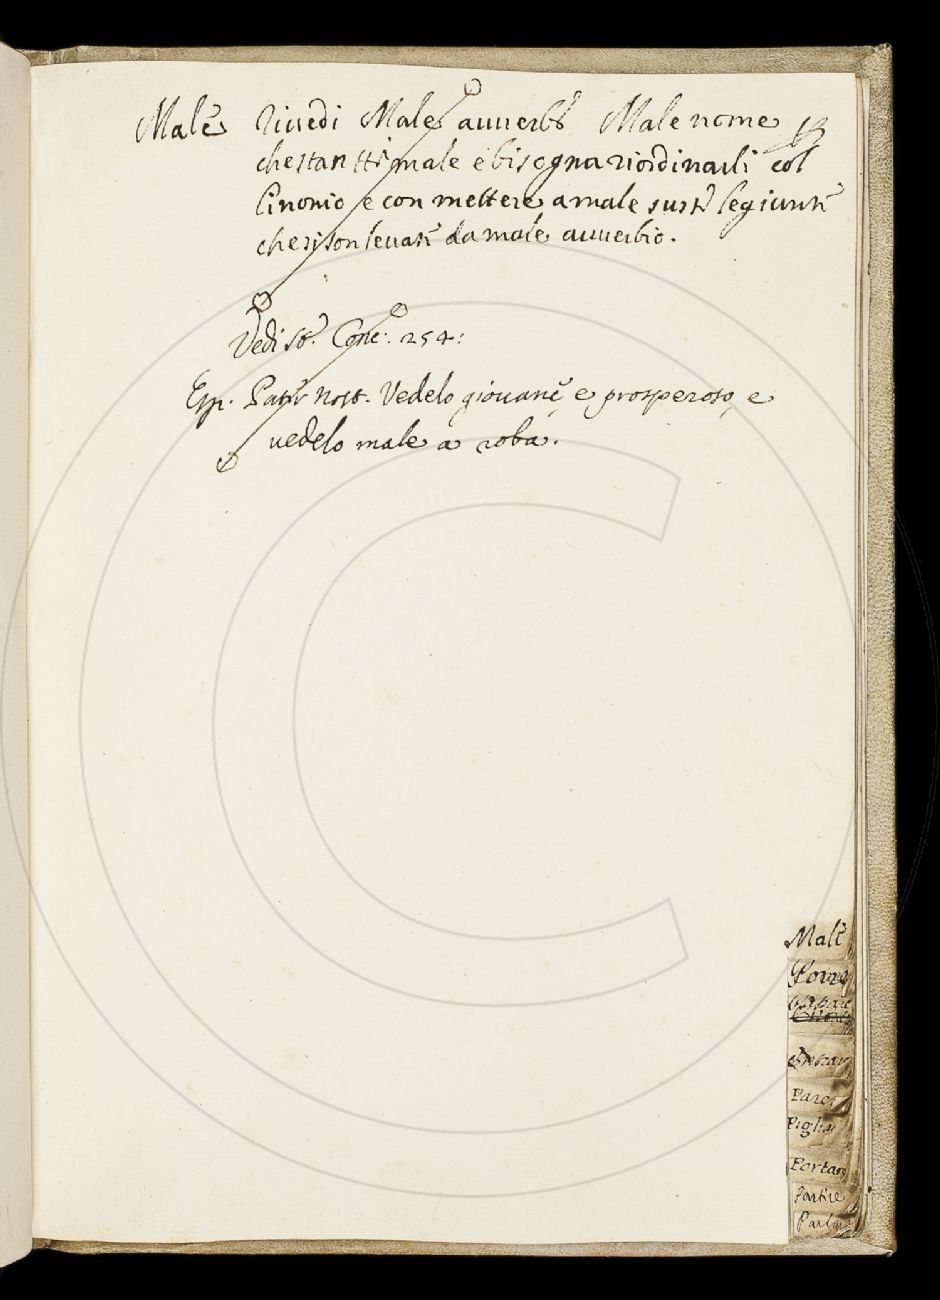 Male Riuedi Male auuerb̃ Male nome 13
che stan ttĩ male e bisogna riordinarli col
Cinonio e con mettere a male sust̃ le giunte
che si son leuate da male auuerbio.
Vedi s̃t. Conc. 254:
Esp. Patr̃ Nost. Vedelo giouane, e prosperoso, e
uedelo male a roba.
Male
Porre
Pare
Piglia
Portar
Partire
Parl